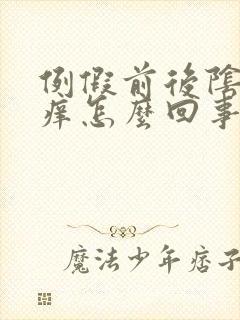 例假前後陰
痒怎麼回事
魔法少年痞子